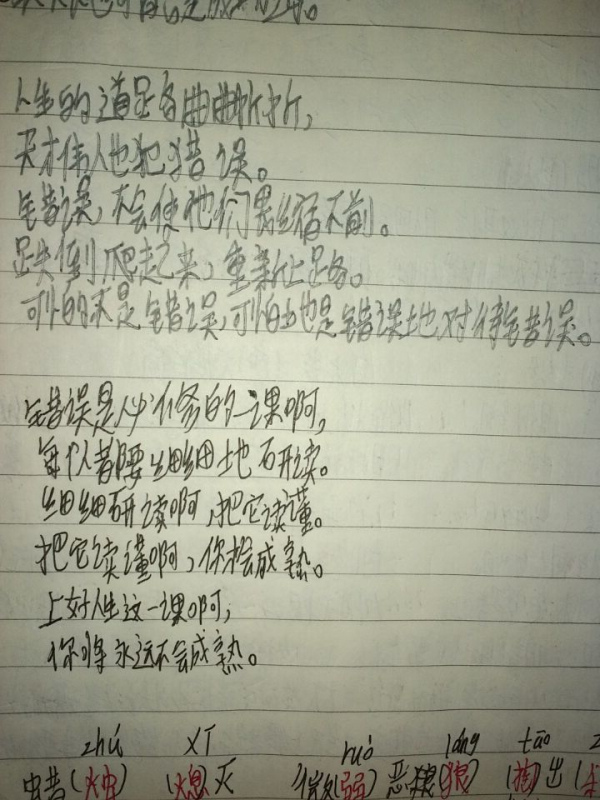 人生的道路曲曲折折，
天才伟人也犯错误。
错误，不会使他们畏缩不前。
跌倒爬起来，重新上路。
可怕的不是错误，可怕的是错误地对待错误。
错误是人必修的一课啊，
每个人都要细细地研读。
细细研读啊，把它读懂。
把它读懂啊，你会成熟。
上好人生这一课啊，
你将永远不会成熟。
zhú xī ruò láng tāo
(烛) (熄)灭 微(弱) 恶狼(狼) (掏)出